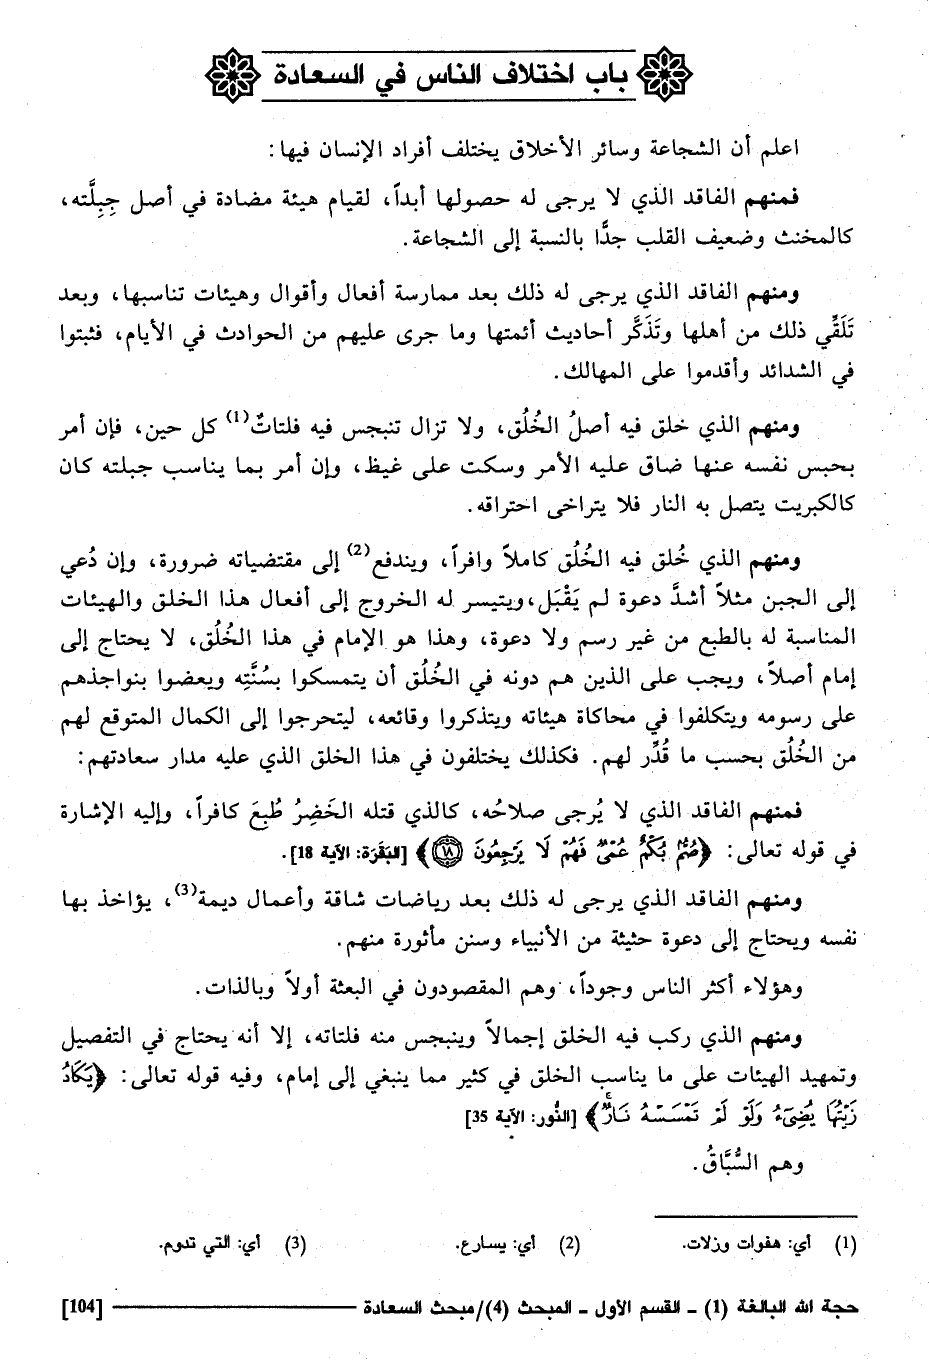 باب اختلاف الناس في السعادة
اعلم أن الشجاعة وسائر الأخلاق يختلف أفراد الإنسان فيها:
فمنهم الفاقد الذي لا يرجى له حصولها أبداً، لقيام هيئة مضادة في أصل جِبِلَّته،
كالمخنث وضعيف القلب جدًّا بالنسبة إلى الشجاعة.
ومنهم الفاقد الذي يرجى له ذلك بعد ممارسة أفعال وأقوال وهيئات تناسبها، وبعد
تَلَقِّي ذلك من أهلها وتَذَكَّر أحاديث أئمتها وما جرى عليهم من الحوادث في الأيام، فثبتوا
في الشدائد وأقدموا على المهالك.
ومنهم الذي خلق فيه أصلُ الخُلُق، ولا تزال تنبجس فيه فلتاتٌ(1) كل حين، فإن أمر
بحبس نفسه عنها ضاق عليه الأمر وسكت على غيظ، وإن أمر بما يناسب جبلته كان
كالكبريت يتصل به النار فلا يتراخى احتراقه.
ومنهم الذي خُلق فيه الخُلُق كاملاً وافراً، ويندفع(2) إلى مقتضياته ضرورة، وإن دُعي
إلى الجبن مثلاً أشدَّ دعوة لم يَقْبَل، ويتيسر له الخروج إلى أفعال هذا الخلق والهيئات
المناسبة له بالطبع من غير رسم ولا دعوة، وهذا هو الإمام في هذا الخُلُق، لا يحتاج إلى
إمام أصلاً، ويجب على الذين هم دونه في الخُلُق أن يتمسكوا بسُنَّتِه ويعضوا بنواجذهم
على رسومه ويتكلفوا في محاكاة هيئاته ويتذكروا وقائعه، ليتحرجوا إلى الكمال المتوقع لهم
من الخُلُق بحسب ما قُدِّر لهم. فكذلك يختلفون في هذا الخلق الذي عليه مدار سعادتهم:
فمنهم الفاقد الذي لا يُرجى صلاحُه، كالذي قتله الخَضِرُ طُبِعَ كافراً، وإليه الإشارة
في قوله تعالى: ﴿صُمٌّ بُكْمٌ عُمْىٌ فَهُمْ لَا يَرْجِعُونَ ١٨﴾ [البَقَرَة: الآية 18].
ومنهم الفاقد الذي يرجى له ذلك بعد رياضات شاقة وأعمال ديمة(3)، يؤاخذ بها
نفسه ويحتاج إلى دعوة حثيثة من الأنبياء وسنن مأثورة منهم.
وهؤلاء أكثر الناس وجوداً، وهم المقصودون في البعثة أولاً وبالذات.
ومنهم الذي ركب فيه الخلق إجمالاً وينبجس منه فلتاته، إلا أنه يحتاج في التفصيل
وتمهيد الهيئات على ما يناسب الخلق في كثير مما ينبغي إلى إمام، وفيه قوله تعالى: ﴿يَكَادُ
زَيْتُهَا يُضِىٓءُ وَلَوْ لَمْ تَمْسَسْهُ نَارٌ﴾ [النُّور: الآية 35]
وهم السُّبَّاقُ.
(1) أي: هفوات وزلات. (2) أي: يسارع. (3) أي: التي تدوم.
حجة الله البالغة (1) - القسم الأول - المبحث (4)/مبحث السعادة [104]